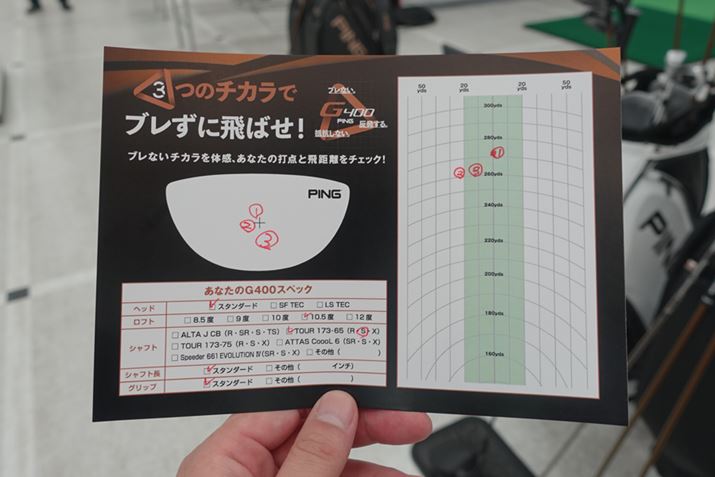 3つのチカラで
ブレずに飛ばせ!
ブレない。
G400
PING
反発する。
抵抗しない。
ブレないチカラを体感、あなたの打点と飛距離をチェック!
PING
1
2
3
あなたのG400スペック
ヘッド ☑スタンダード □SF TEC □LS TEC
ロフト □8.5度 □9度 □10度 ☑10.5度 □12度
シャフト □ALTA J CB (R・SR・S・TS) ☑TOUR 173-65 (R・S・X)
□TOUR 173-75 (R・S・X) □ATTAS CoooL 6 (SR・S・X)
□Speeder 661 EVOLUTION Ⅳ(SR・S・X) □その他 ( )
シャフト長 ☑スタンダード □その他 ( インチ)
グリップ ☑スタンダード □その他 ( )
50 yds 20 yds 20 yds 50 yds
300yds
280yds
1
2 3
260yds
240yds
220yds
200yds
180yds
160yds
PING
PING